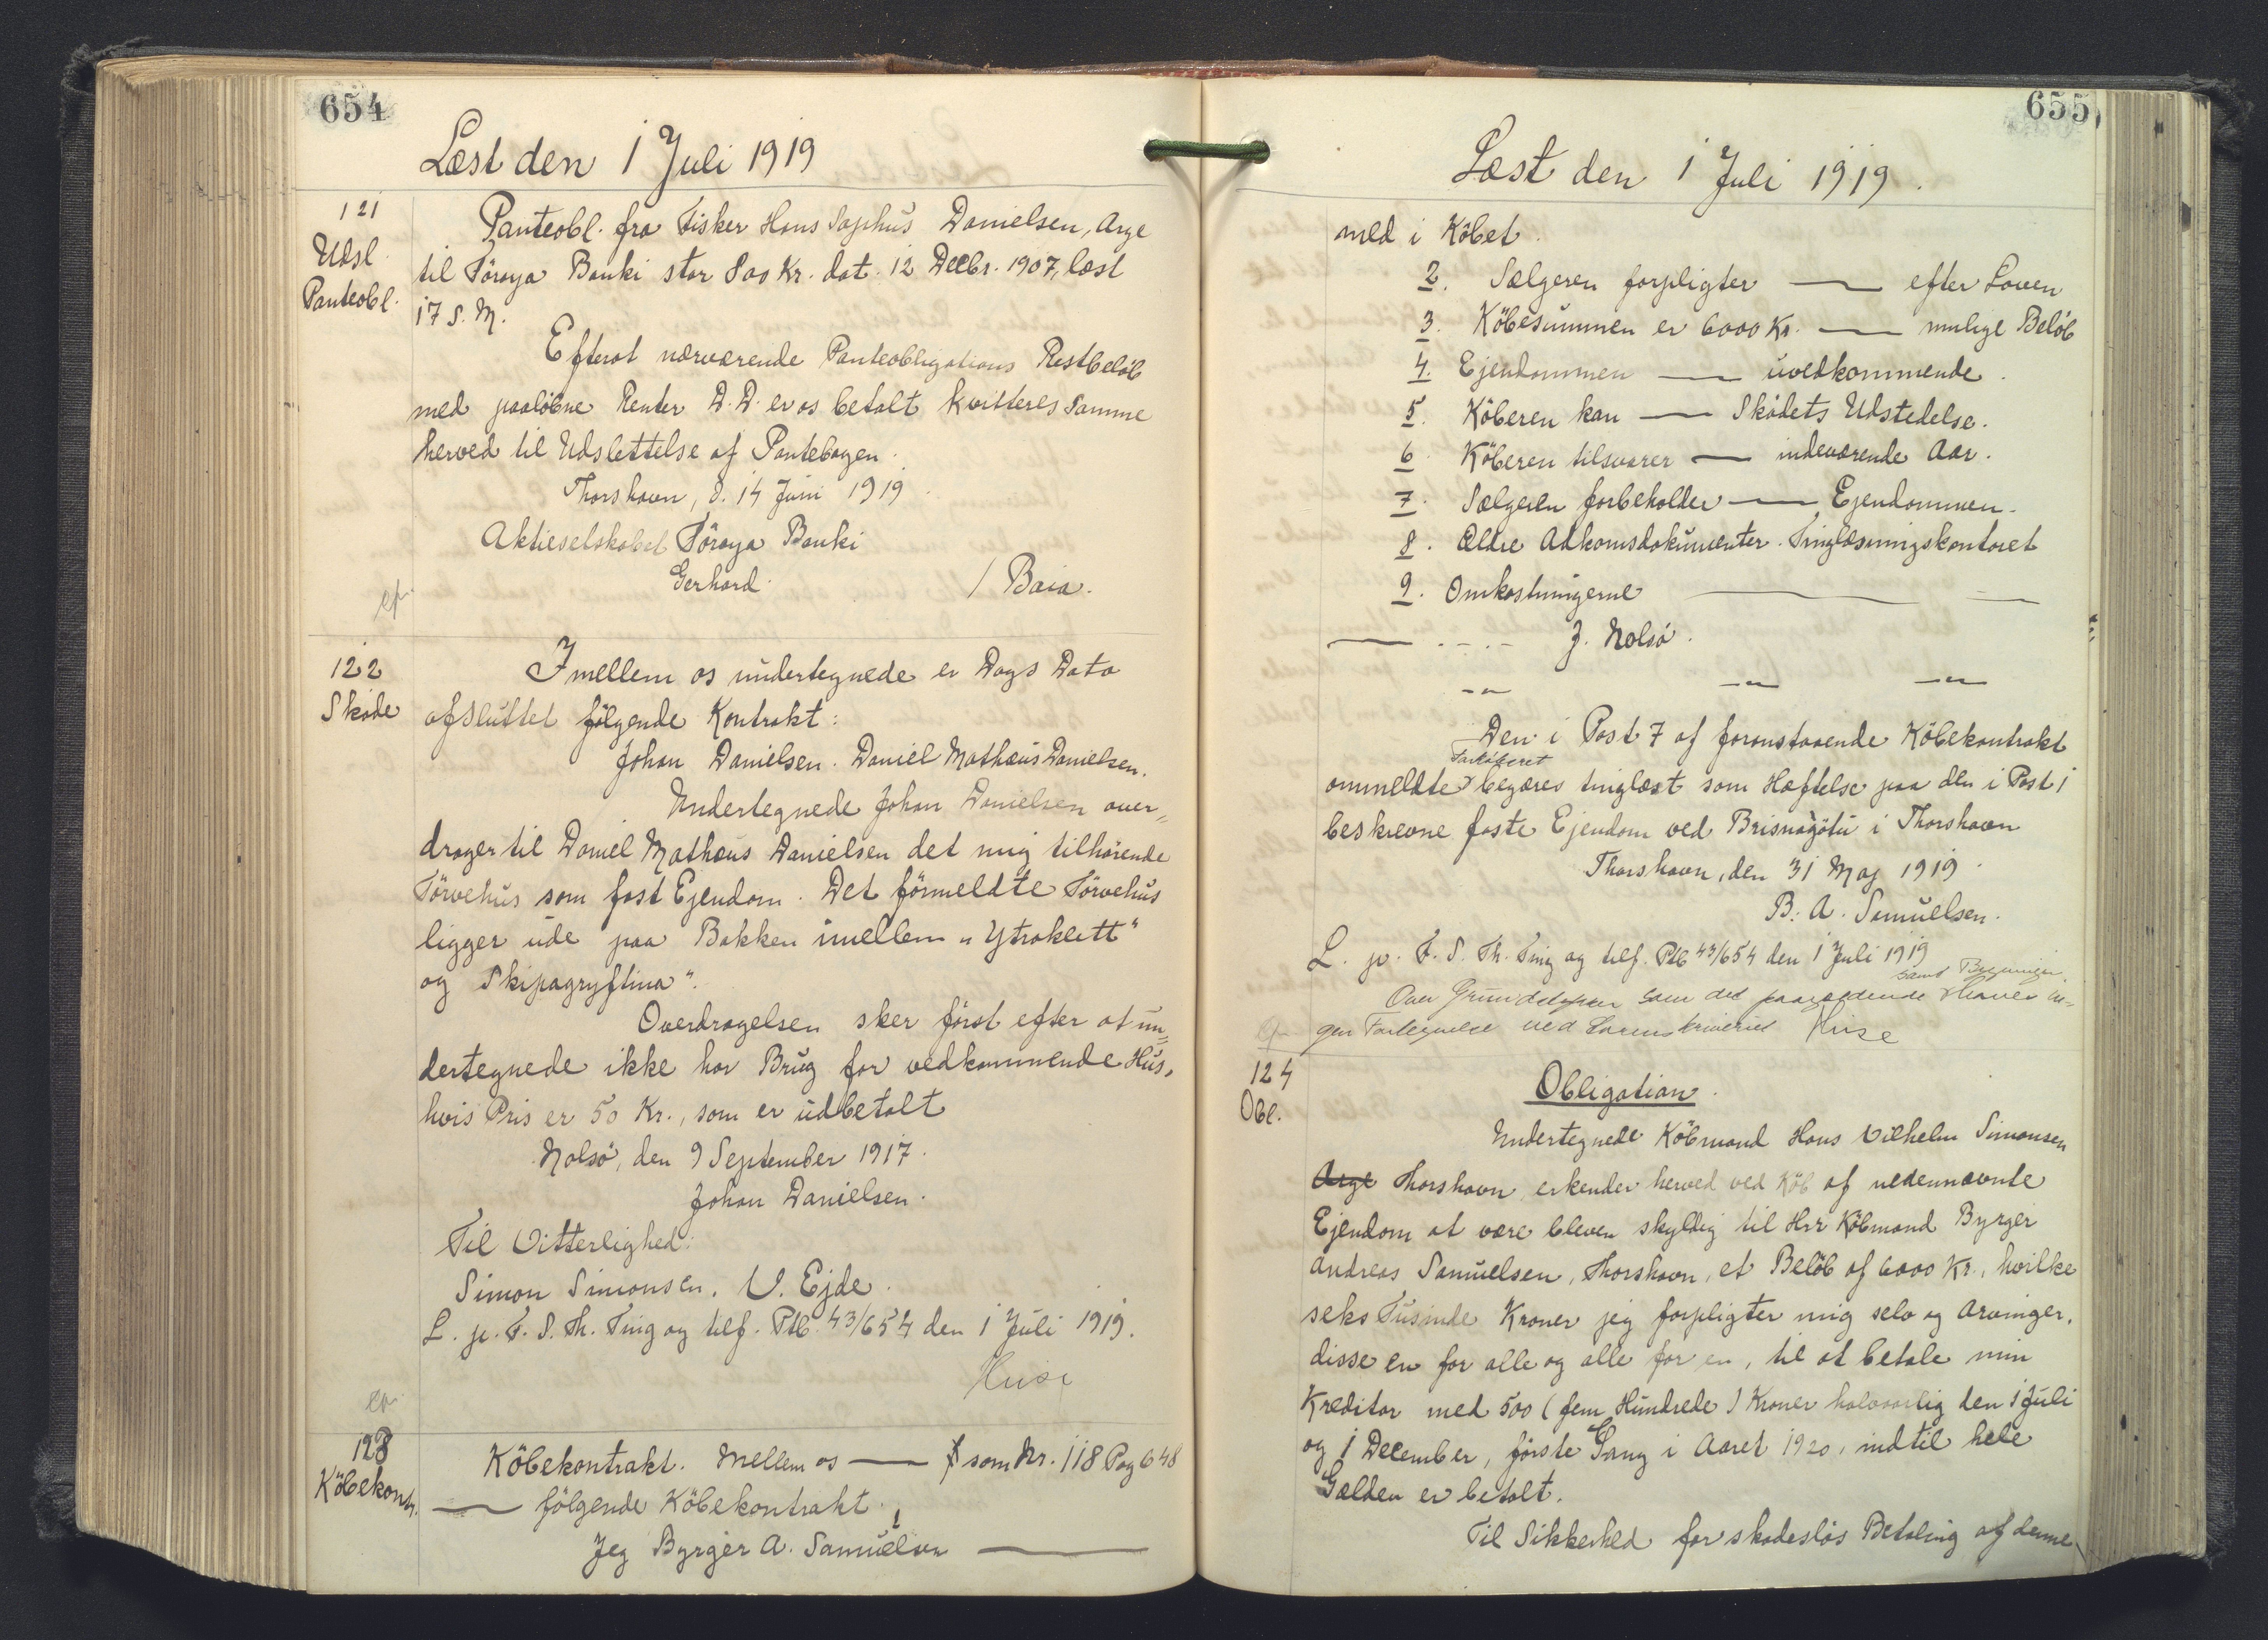 654
Læst den 1 Juli 1919
121
Udsl.
Panteobl.
Panteobl. fra Fisker Hans Sophus Danielsen, Arge
til Föroya Banki stor 800 Kr. dat. 12 Decbr. 1907, læst
17 S. M.
Efterat nærværende Panteobligations Restbeløb
med paaløbne Renter D. D. er os betalt kvitteres Samme
herved til Udslettelse af Pantebogen.
Thorshavn, d. 14 Juni 1919.
Aktieselskabet Föroya Banki
Gerhard. / Baia.
122
Skøde
Imellem os undertegnede er Dags Dato
afsluttet følgende Kontrakt:
Johan Danielsen. Daniel Mathæus Danielsen.
Undertegnede Johan Danielsen over„
drager til Daniel Mathæus Danielsen det mig tilhørende
Törvehus som fast Ejendom. Det förmeldte Törvehus
ligger ude paa Bakken imellem „Ytraklett"
og Skipagryftina".
Overdragelsen sker først efter at un„
dertegnede ikke har Brug for vedkommende Hus,
hvis Pris er 50 Kr., som er udbetalt
Nolsø, den 9 September 1917.
Johan Danielsen.
Til Vitterlighed:
Simon Simonsen. V. Ejde.
L. p. F. S. Th. Ting og tilf. Ptb. 43/654 den 1 Juli 1919.
Hise
123
Köbekontr.
Köbekontrakt. Mellem os — som Nr. 118 Pag 648
— fölgende Köbekontrakt.
1
Jeg Byrger A. Samuelsen —
655
Læst den 1 Juli 1919.
med i Köbet.
2. Sælgeren forpligter — efter Loven
3. Köbesummen er 6000 Kr. — mulige Beløb
4. Ejendommen — uvedkommende.
5. Köberen kan — Skødets Udstedelse.
6. Köberen tilsvarer — indeværende Aar.
7. Sælgeren forbeholder — Ejendommen.
8. Ældre Adkomsdokumenter. Tinglæsningskontoret
9. Omkostningerne — —
— - - - J. Nolsö.
-"- -"- -"-
Den i Post 7 af foranstaaende Köbekontrakt
Forkøbsret
ommeldte begæres tinglæst som Hæftelse paa den i Post 1
beskrevne faste Ejendom ved Brisnagötu i Thorshavn
Thorshavn, den 31 Maj 1919.
B. A. Samuelsen.
L. p. F. S. Th. Ting og tilf. Ptb 43/654 den 1 Juli 1919
samt Bygninger
Over Grundstykker som det paagældende Haves in=
gen Fortegnelse ved Sorenskriveriet Hise
124
Obl.
Obligation.
Undertegnede Köbmand Hans Vilhelm Simonsen
Arge Thorshavn erkender herved ved Köb af nedennævnte
Ejendom at være bleven skyldig til Hrr Köbmand Byrger
Andreas Samuelsen, Thorshavn, et Beløb af 6000 Kr., hvilke
seks Tusinde Kroner jeg forpligter mig selv og Arvinger,
disse en for alle og alle for en, til at betale min
Kreditor med 500 (fem Hundrede) Kroner halvaarlig den 1 Juli
og 1 December, første Gang i Aaret 1920, indtil hele
Gælden er betalt.
Til Sikkerhed for skadeslös Betaling af denne